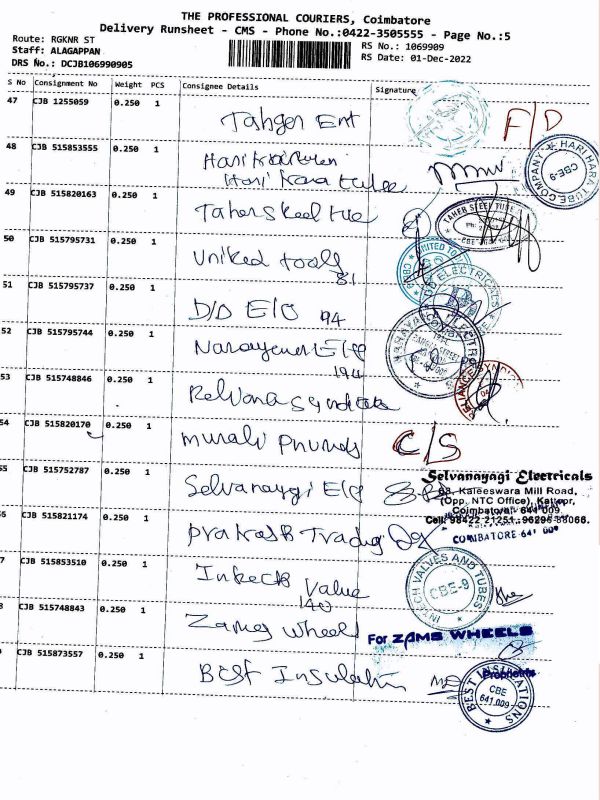 THE PROFESSIONAL COURIERS, Coimbatore
Delivery Runsheet - CMS - Phone No.:0422-3505555 - Page No.:5
Route: RGKNR ST
RS No.: 1069909
Staff: ALAGAPPAN
RS Date: 01-Dec-2022
DRS No.: DCJB106990905
S No Consignment No Weight PCS Consignee Details Signature
47 CJB 1255059 0.250 1
Ent F/D
48 CJB 515853555 0.250 1
Hari
Hari Hara tube
HARI HARA TUBE COMPANY CBE-9
49 CJB 515820163 0.250 1
Taher Steel tube
TAHER STEEL TUBE
50 CJB 515795731 0.250 1
United tools
81
UNITED TO
51 CJB 515795737 0.250 1
D/D E/C 94
ELECTRICALS
52 CJB 515795744 0.250 1
Narayanan
194
53 CJB 515748846 0.250 1
Reliance Syndicate
RELIANCE SYNDI
54 CJB 515820170
murali C/S
55 CJB 515752787 0.250 1
Selvanaygi
Selvanayagi Electricals
68, Kaleeswara Mill Road,
(Opp. NTC Office), Kattoor,
Coimbatore - 641 009
Cell: 98422 21251, 96296 88066.
56 CJB 515821174 0.250 1
Prakash Trading
COIMBATORE-641 009
7 CJB 515853510 0.250 1
Intech Value
140
INTECH VALVES AND TUBES CBE-9
8 CJB 515748843 0.250 1
Zams wheels
For ZAMS WHEELS
Proprietrix
CJB 515873557 0.250 1
Best Insulation
BEST INSULATIONS CBE 641 009